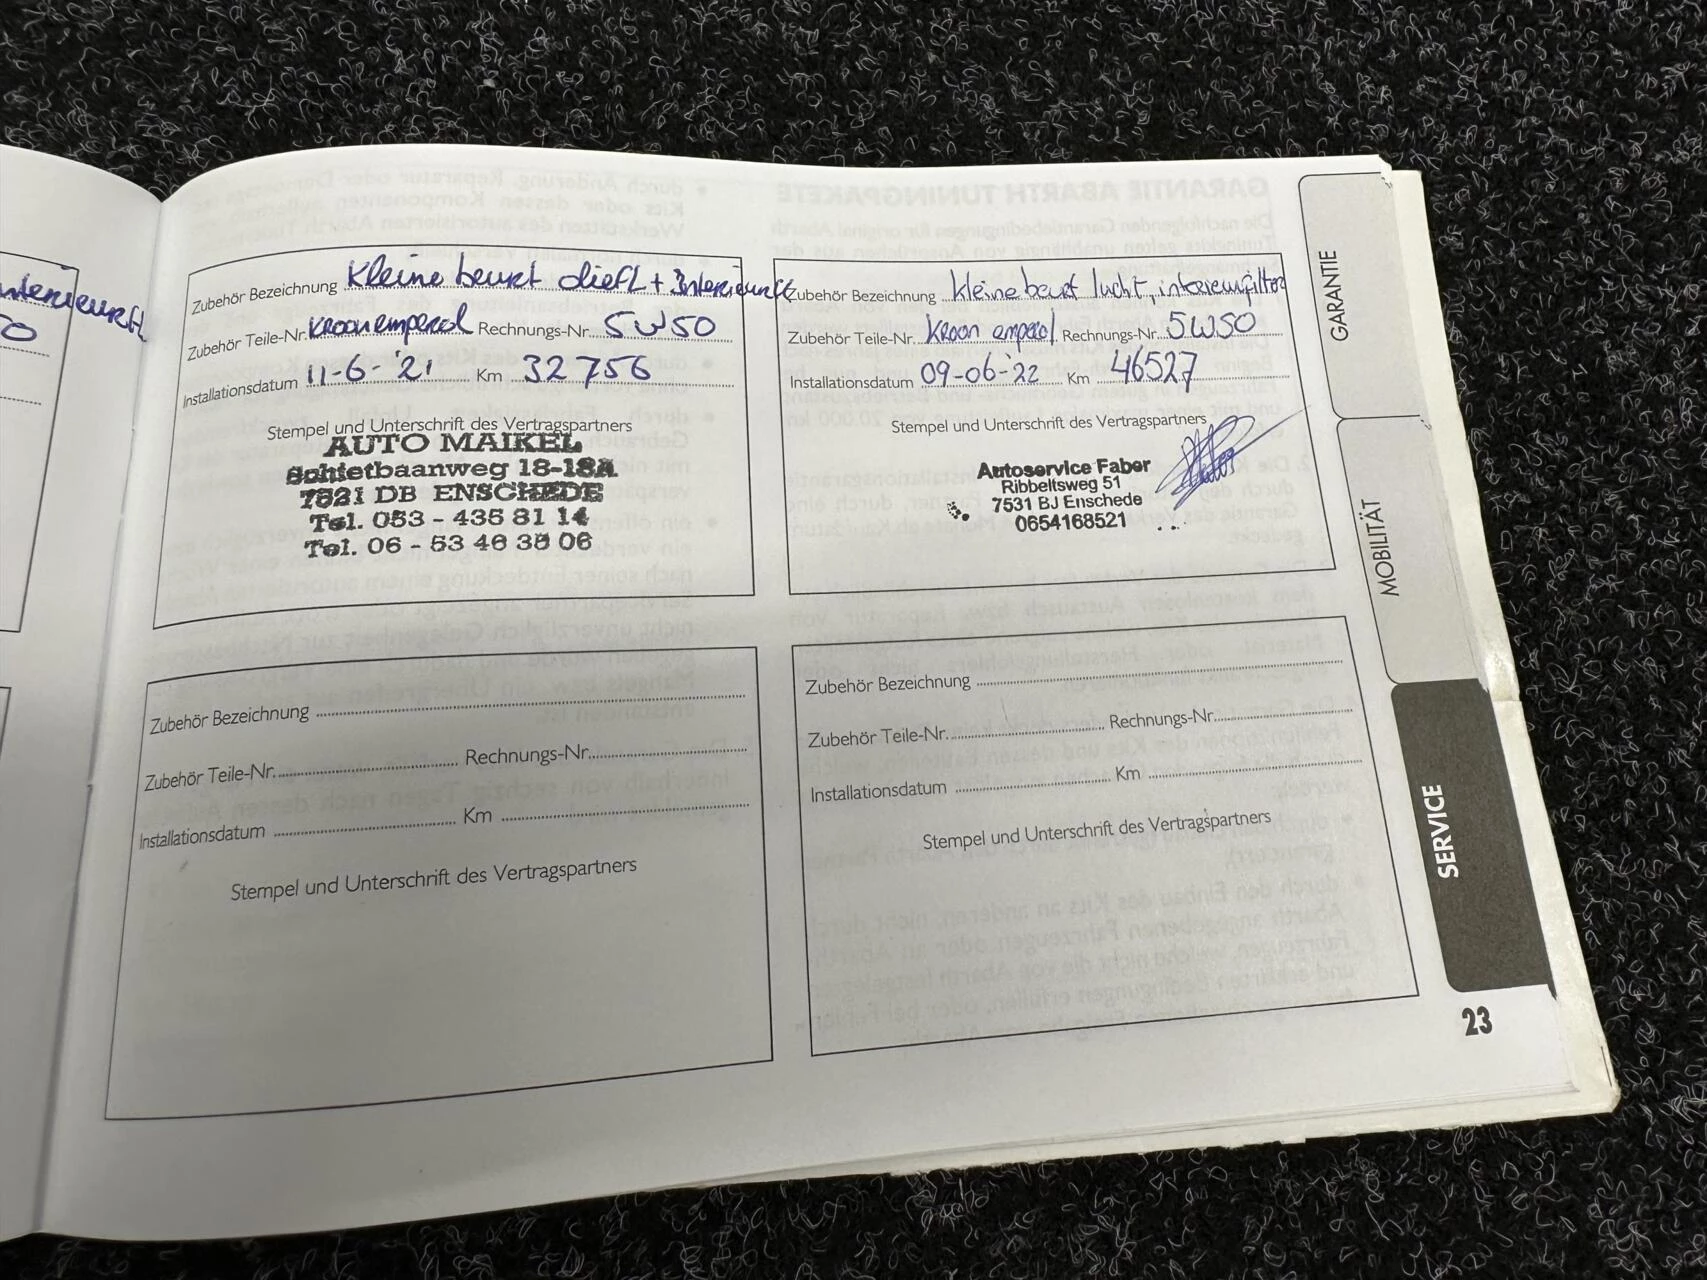 Zubehör Bezeichnung Kleine beurt
Zubehör Teile-Nr. Kroon emperol Rechnungs-Nr. 5W50
Installationsdatum 11-6-'21 Km 32756
Stempel und Unterschrift des Vertragspartners
AUTO MAIKEL
Schietbaanweg 18-18A
7521 DB ENSCHEDE
Tel. 053 - 435 81 14
Tel. 06 - 53 46 38 06
Zubehör Bezeichnung kleine beurt lucht, interieurfilter
Zubehör Teile-Nr. Kroon emperol Rechnungs-Nr. 5W50
Installationsdatum 09-06-'22 Km 46527
Stempel und Unterschrift des Vertragspartners
Autoservice Faber
Ribbeltsweg 51
7531 BJ Enschede
0654168521
Zubehör Bezeichnung
Zubehör Teile-Nr. Rechnungs-Nr.
Installationsdatum Km
Stempel und Unterschrift des Vertragspartners
Zubehör Bezeichnung
Zubehör Teile-Nr. Rechnungs-Nr.
Installationsdatum Km
Stempel und Unterschrift des Vertragspartners
GARANTIE
MOBILITÄT
SERVICE
23